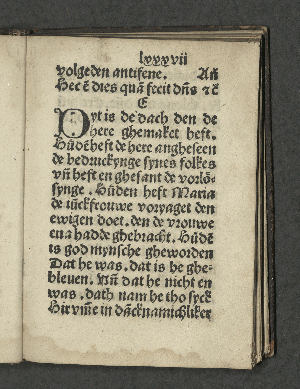 lxxxvii
volgeden antifene. Añ
Hec ē dies quā fecit dñs ꝛc̄
E
Dyt is de dach den de
here ghemaket heft.
Hůdē heft de here angheseen
de bedruckynge synes folkes
vñ heft en ghesant de vorlö-
synge. Hůden heft Maria
de iūckfrouwe voryaget den
ewigen doet. den de vrouwe
eua hadde ghebracht. Hůdē
is god mynsche gheworden
Dat he was. dat is he ghe-
bleuen. Vñ dat he nicht en
was. dath nam he tho syck
Hir vm̄e in dācknamichliker